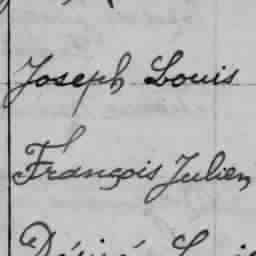 Joseph Louis
François Julien
Désiré